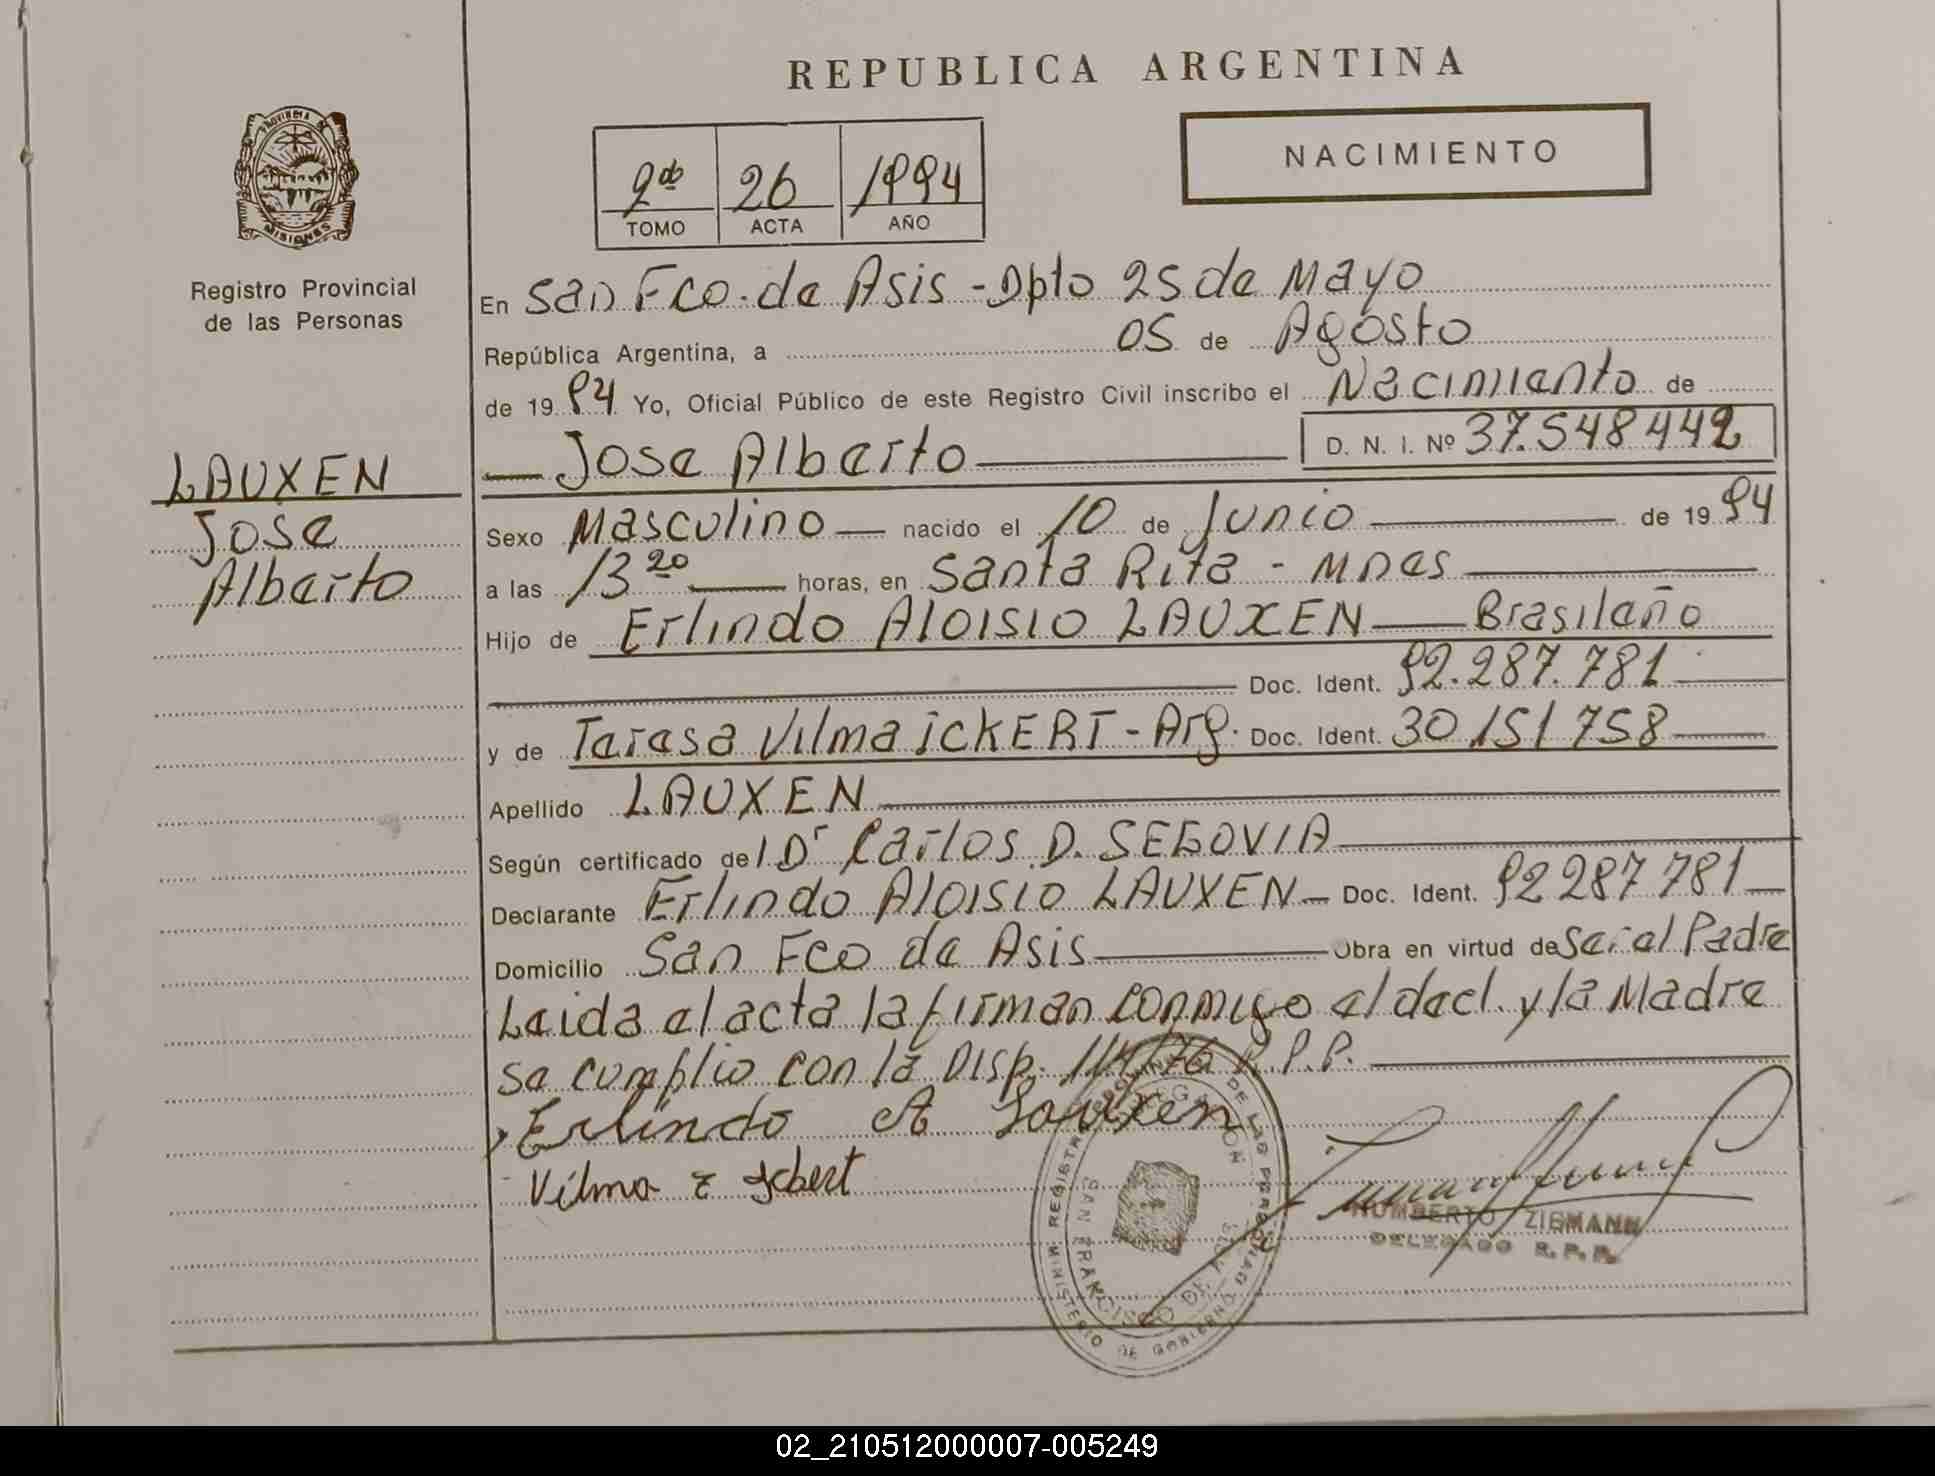 REPUBLICA ARGENTINA
PROVINCIA DE MISIONES
NACIMIENTO
2do 26 1994
TOMO ACTA AÑO
Registro Provincial
de las Personas
En San Fco. de Asis - Dpto 25 de Mayo
República Argentina, a 05 de Agosto
de 19 94 Yo, Oficial Público de este Registro Civil inscribo el Nacimiento de
Jose Alberto D. N. I. Nº 37.548442
LAUXEN
Jose
Alberto
Sexo Masculino nacido el 10 de Junio de 19 94
a las 13 20 horas, en Santa Rita - Mnes
Hijo de Erlindo Aloisio LAUXEN Brasileño
Doc. Ident. 92.287.781
y de Teresa Vilma ickERT - Arg. Doc. Ident. 30.151758
Apellido LAUXEN
Según certificado del Dr Carlos D. SEGOVIA
Declarante Erlindo Aloisio LAUXEN Doc. Ident. 92 287 781
Domicilio San Fco de Asis Obra en virtud de Ser el Padre
Leida el acta la firman conmigo el decl. y la Madre
se cumplio con la Disp. 114/76 R.P.P.
Erlindo A Lauxen
Vilma T Ickert
HUMBERTO ZIEMANN
DELEGADO R.P.P.
MINISTERIO DE GOBIERNO
SAN FRANCISCO DE ASIS
02_210512000007-005249